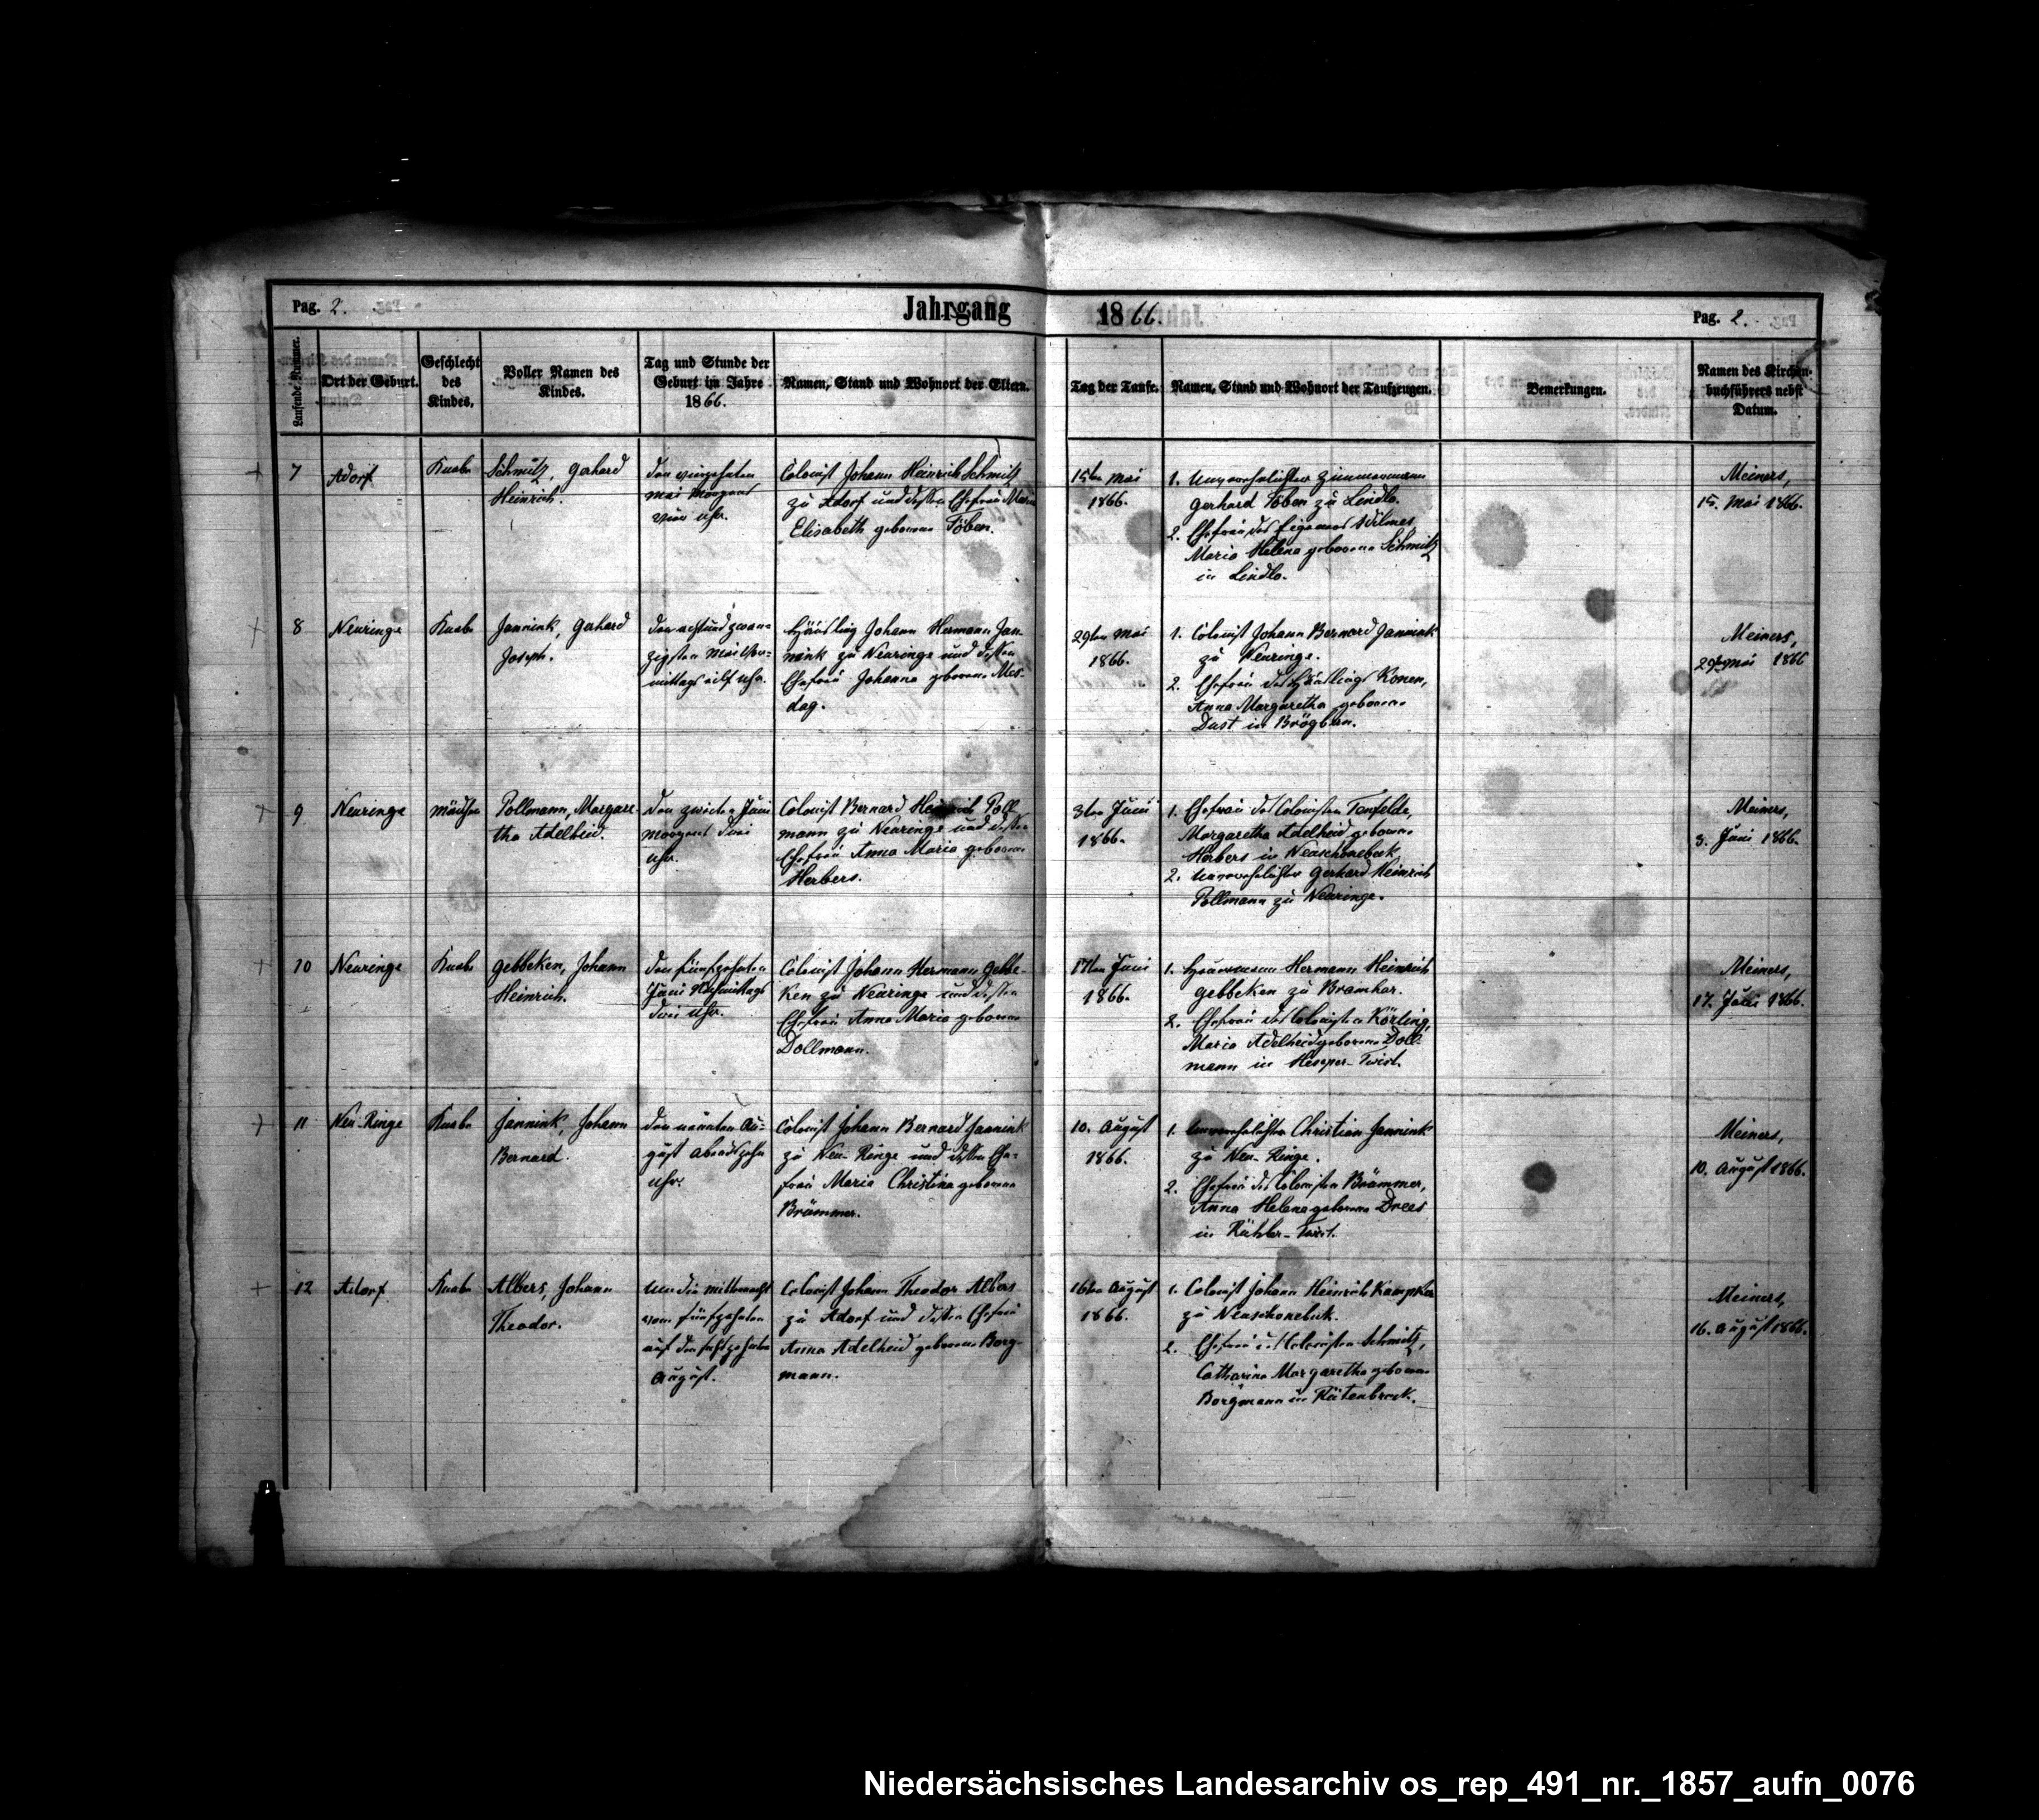 Pag. 2.
Jahrgang 1866.
Pag. 2.
Laufende Nummer.
Ort der Geburt.
Geschlecht
des
Kindes.
Voller Namen des
Kindes.
Tag und Stunde der
Geburt im Jahre
1866.
Namen, Stand und Wohnort der Eltern.
Tag der Taufe.
Namen, Stand und Wohnort der Taufzeugen.
Bemerkungen.
Namen des Kirchen-
buchführers nebst
Datum.
7
Adorf
Knabe
Schmitz, Gerhard
Heinrich.
den vierzehnten
Mai Morgens
vier Uhr.
Colonist Johann Heinrich Schmitz
zu Adorf und dessen Ehefrau Maria
Elisabeth geborene Töben.
15ten Mai
1866.
1. Unverehelichter Zimmermann
Gerhard Töben zu Lindlo.
2. Ehefrau des Eigeners Wilmes,
Maria Helena geborene Schmitz
in Lindlo.
Meiners,
15. Mai 1866.
8
Neuringe
Knabe
Jannink, Gerhard
Joseph.
den achtundzwan-
zigsten Mai Vor-
mittags eilf Uhr.
Häusling Johann Hermann Jan-
nink zu Neuringe und dessen
Ehefrau Johanna geborene Mes-
dag.
29ten Mai
1866.
1. Colonist Johann Bernard Jannink
zu Neuringe.
2. Ehefrau des Häuslings Konen,
Anna Margaretha geborene
Dust in Brögbern.
Meiners,
29ten Mai 1866
9
Neuringe
Mädchen
Pollmann, Margare-
tha Adelheid.
den zweiten Juni
Morgens drei
Uhr.
Colonist Bernard Heinrich Poll-
mann zu Neuringe und dessen
Ehefrau Anna Maria geborene
Herbers.
3ten Juni
1866.
1. Ehefrau des Colonisten Tenfelde,
Margaretha Adelheid geborene
Herbers in Neuschonebeek
2. Unverehelichter Gerhard Heinrich
Pollmann zu Neuringe.
Meiners,
3. Juni 1866.
10
Neuringe
Knabe
Gebbeken, Johann
Heinrich.
den fünfzehnten
Juni Nachmittags
drei Uhr.
Colonist Johann Hermann Gebbe-
ken zu Neuringe und dessen
Ehefrau Anna Maria geborene
Dollmann.
17ten Juni
1866.
1. Heuermann Hermann Heinrich
Gebbeken zu Bramhar.
2. Ehefrau des Colonisten Körting,
Maria Adelheid geborene Doll-
mann in Hesper-Twist.
Meiners,
17. Juni 1866.
11
Neu-Ringe
Knabe
Jannink, Johann
Bernard.
den neunten Au-
gust Abends zehn
Uhr.
Colonist Johann Bernard Jannink
zu Neu-Ringe und dessen Ehe-
frau Maria Christina geborene
Brümmer.
10. August
1866.
1. Unverehelichter Christian Jannink
zu Neu-Ringe.
2. Ehefrau des Colonisten Brümmer,
Anna Helena geborene Drees
in Rühler-Twist.
Meiners,
10. August 1866.
12
Adorf
Knabe
Albers, Johann
Theodor.
Um die Mitternacht
vom fünfzehnten
auf den sechszehnten
August.
Colonist Johann Theodor Albers
zu Adorf und dessen Ehefrau
Anna Adelheid geborene Borg-
mann.
16ten August
1866.
1. Colonist Johann Heinrich Kampher
zu Neuschonebeek.
2. Ehefrau des Colonisten Schmitz,
Catharina Margaretha geborene
Borgmann in Rütenbrock.
Meiners,
16. August 1866.
Niedersächsisches Landesarchiv os_rep_491_nr._1857_aufn_0076